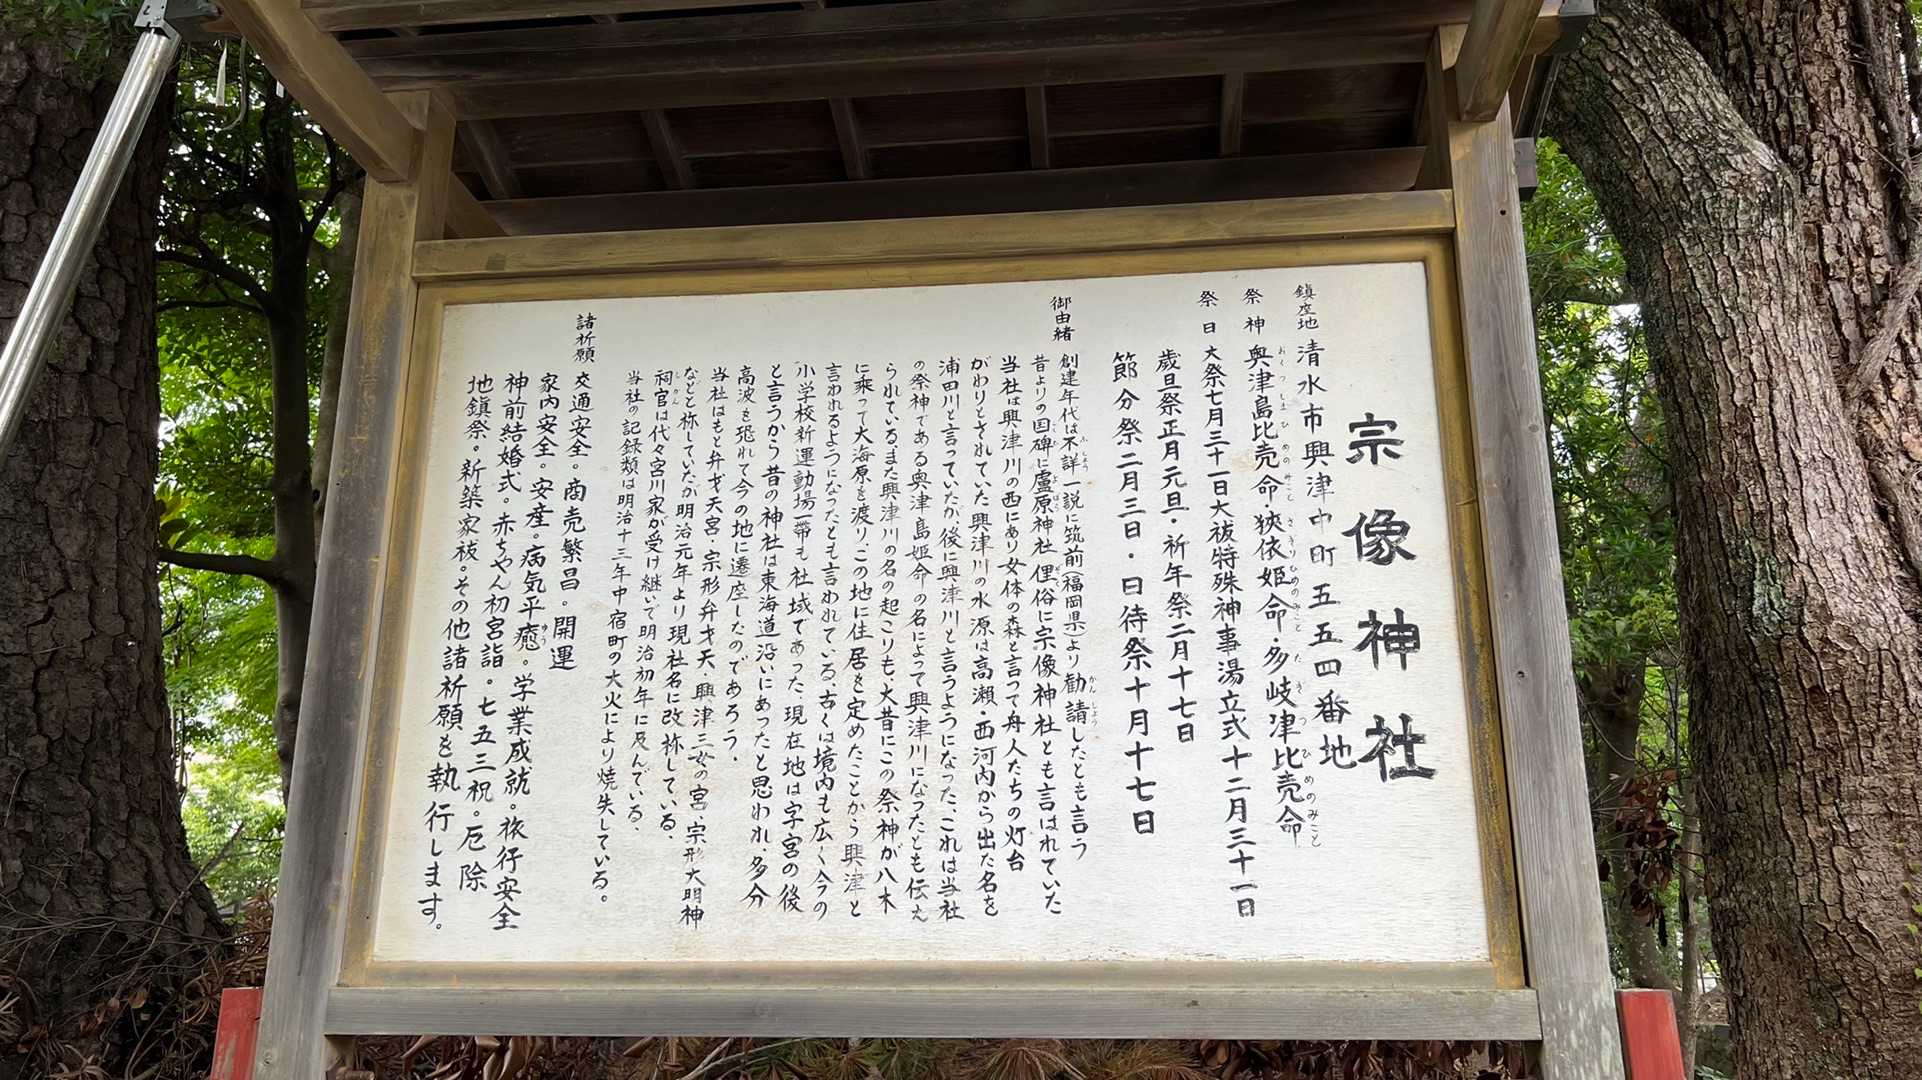 宗像神社
鎮座地 清水市興津中町五五四番地
祭神 興津島比売命・狭依姫命・多岐津比売命
おくつしまひめのみこと さきりひめのみこと たきつひめのみこと
祭日 大祭七月三十一日大祓特殊神事湯立式十二月三十一日
歳旦祭正月元旦・祈年祭二月十七日
節分祭二月三日・日待祭十月十七日
御由緒 創建年代は不詳一説に筑前(福岡県)より勧請したとも言う
ふしょう かんしょう
昔よりの国碑に廬原神社俚俗に宗像神社とも言はれていた
当社は興津川の西にあり女体の森と言って舟人たちの灯台
がわりとされていた興津川の水源は高瀬・西河内から出た名を
浦田川と言っていたが後に興津川と言うようになった、これは当社
の祭神である奥津島姫命の名によって興津川になったとも伝え
られているまた興津川の名の起こりも、大昔にこの祭神が八木
に乗って大海原を渡り、この地に住居を定めたことから興津と
言われるようになったとも言われている、古くは境内も広く今の
小学校新運動場一帯も社域であった、現在地は字宮の後
と言うから昔の神社は東海道沿いにあったと思われ、多分
高波を恐れて今の地に遷座したのであろう。
当社はもと弁才天宮・宗形弁才天・興津三女の宮・宗形大明神
などと称していたが明治元年より現社名に改称している、
祠官は代々宮川家が受け継いで明治初年に及んでいる、
しかん
当社の記録類は明治十三年中宿町の大火により焼失している。
諸祈願 交通安全。商売繁昌。開運
家内安全。安産。病気平癒。学業成就。旅行安全
ゆう
神前結婚式。赤ちゃん初宮詣。七五三祝。厄除
地鎮祭。新築家祓。その他諸祈願を執行します。